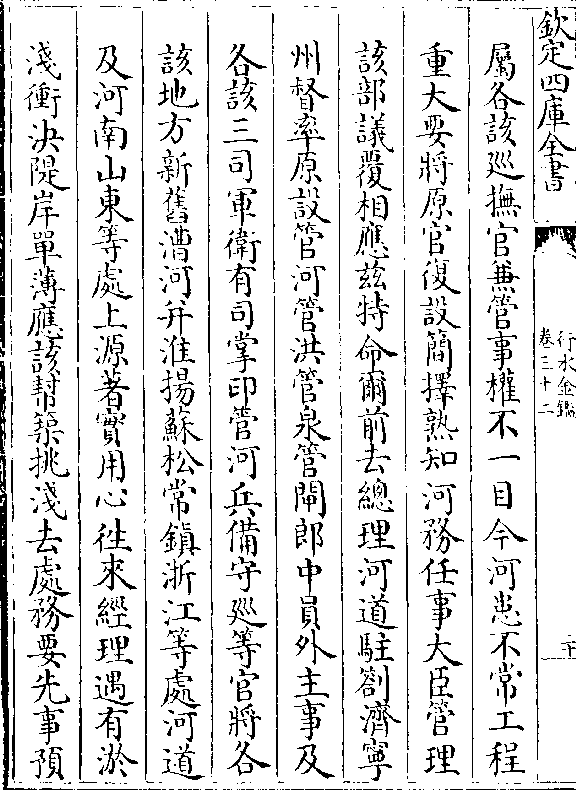 欽定四庫全書
行水金鑑
卷三十二
屬各該廵撫官兼管事權不一目今河患不常工程
重大要將原官復設簡擇熟知河務任事大臣管理
該部議覆相應兹特命爾前去總理河道駐劄濟寧
州督率原設管河管洪管泉管閘郎中員外主事及
各該三司軍衛有司掌印管河兵備守廵等官將各
該地方新舊漕河并淮揚蘇松常鎮浙江等處河道
及河南山東等處上源著實用心徃來經理遇有淤
淺衝決隄岸單薄應該幫築挑淺去處務要先事預